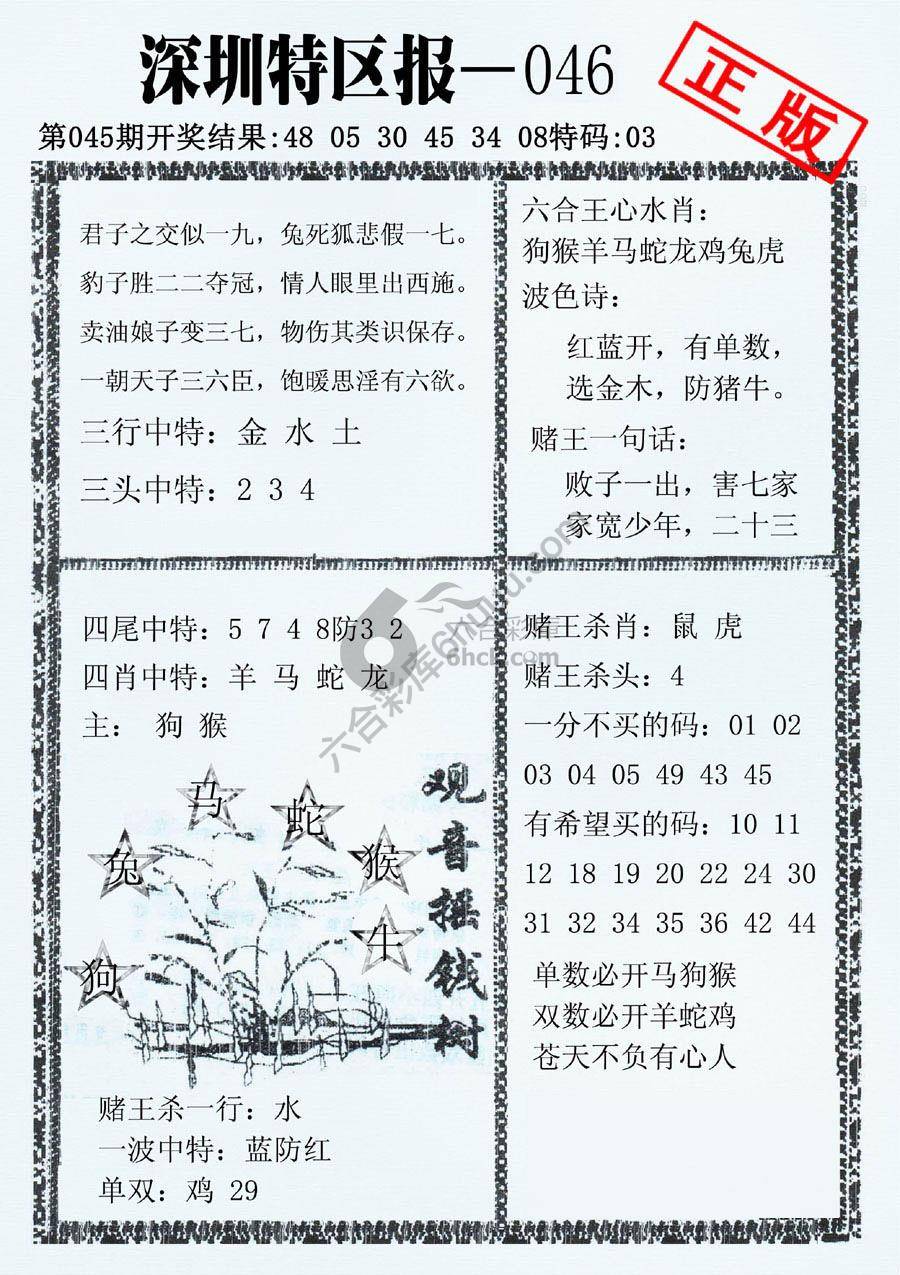 深圳特区报—046
正版
第045期开奖结果:48 05 30 45 34 08特码:03
君子之交似一九，兔死狐悲假一七。
豹子胜二二夺冠，情人眼里出西施。
卖油娘子变三七，物伤其类识保存。
一朝天子三六臣，饱暖思淫有六欲。
三行中特：金 水 土
三头中特：2 3 4
六合王心水肖：
狗猴羊马蛇龙鸡兔虎
波色诗：
红蓝开，有单数，
选金木，防猪牛。
赌王一句话：
败子一出，害七家
家宽少年，二十三
四尾中特：5 7 4 8防3 2
四肖中特：羊 马 蛇 龙
主： 狗 猴
马
蛇
兔
猴
牛
狗
观音摇钱树
赌王杀一行：水
一波中特：蓝防红
单双：鸡 29
赌王杀肖：鼠 虎
赌王杀头：4
一分不买的码：01 02
03 04 05 49 43 45
有希望买的码：10 11
12 18 19 20 22 24 30
31 32 34 35 36 42 44
单数必开马狗猴
双数必开羊蛇鸡
苍天不负有心人
六合彩库6hutu.com
六合彩库
6hck.com